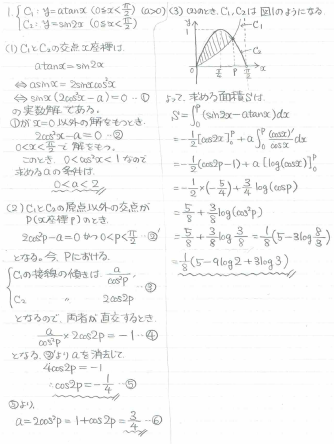 1. { C₁: y=atanx (0≦x<π/2) (a>0)
C₂: y=sin2x (0≦x<π/2)
(1) C₁とC₂の交点x座標は、
atanx=sin2x
⇔ asinx=2sinxcos²x
⇔ sinx(2cos²x-a)=0 -①
の実数解である。
①がx=0以外の解をもつとき、
2cos²x-a=0 -②
0<x<π/2で解をもつ。
このとき、0<cos²x<1なので
求めるaの条件は、
0<a<2
(2) C₁とC₂の原点以外の交点が
P(x座標P)のとき、
2cos²p-a=0かつ0<p<π/2 -②'
となる。今、Pにおける
{ C₁の接線の傾きは、a/cos²p
C₂ 〃 2cos2p -③
となるので、両者が直交するとき、
a/cos²p × 2cos2p = -1 -④
となる。②'よりaを消去して
4cos2p=-1
∴cos2p=-1/4 -⑤
⑤より、
a=2cos²p=1+cos2p=3/4 -⑥
(3) (2)のとき、C₁、C₂は図1のようになる。
y
1
C₁
C₂
0
π/4
P
π/2
x
よって、求める面積Sは、
S=∫₀ᵖ(sin2x-atanx)dx
=-1/2[cos2x]₀ᵖ+a∫₀ᵖ(cosx)'/cosx dx
=-1/2(cos2p-1)+a[log(cosx)]₀ᵖ
=-1/2×(-5/4)+3/4 log(cosp)
=5/8+3/8 log(cos²p)
=5/8+3/8 log 3/8=1/8(5-3log 8/3)
=1/8(5-9log2+3log3)